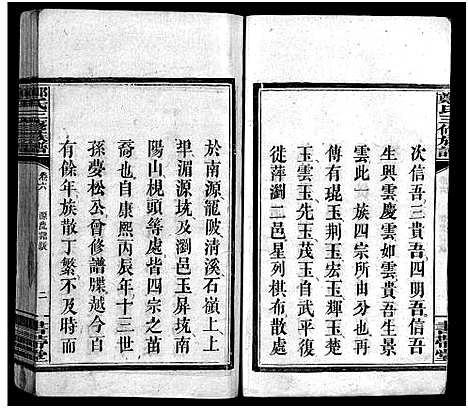 鄭氏三修族譜
次信吾三貴吾四明吾信吾
生興雲慶雲如雲貴吾生景
雲此一族四宗所由分也再
傳有琨玉荆玉宏玉輝玉楚
玉雲玉先玉茂玉自武平復
徙萍瀏二邑星列棋布散處
書帶堂
於南源龍陂清溪石嶺上上
犂湄源坑及瀏邑玉屏坑南
陽山梘頭等處皆四宗之苗
裔也自康熙丙辰年十三世
孫夢松公會修譜牒越今百
有餘年族散丁繁不及時而
鄭氏三修族譜
卷六
源流總敍
二
書帶堂